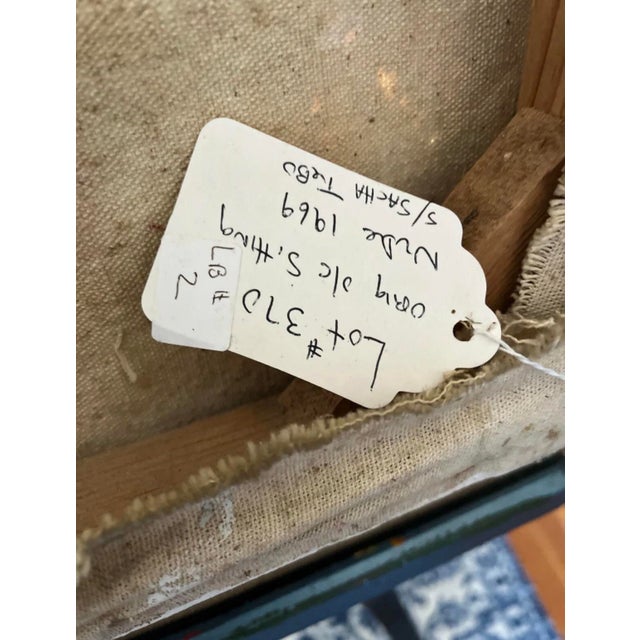 Lot # 370
orig o/c Sitting
Nude 1969
S/SACHA TeBO
LB #
2